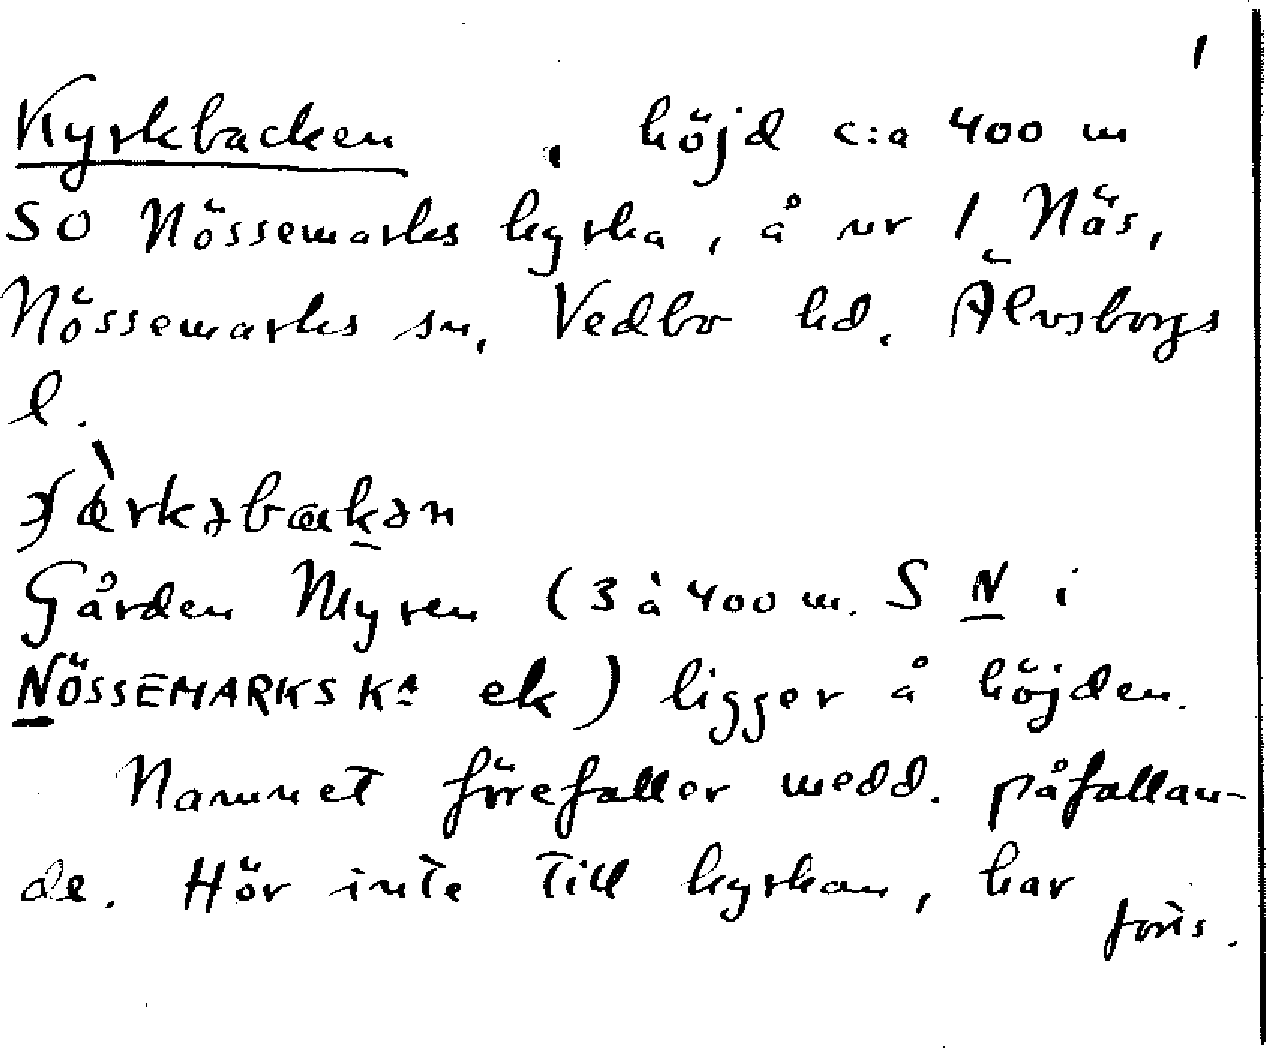 1
Kyrkbacken , höjd c:a 400 m
SO Nössemarks kyrka, å nr 1 Näs,
Nössemarks sn, Vedbo hd. Älvsborgs
l.
Gården Myren (3 à 400 m. S N i
NÖSSEMARKS Ka ek) ligger å höjden.
Namnet förefaller medd. påfallan-
de. Hör inte till kyrkan, har
forts.